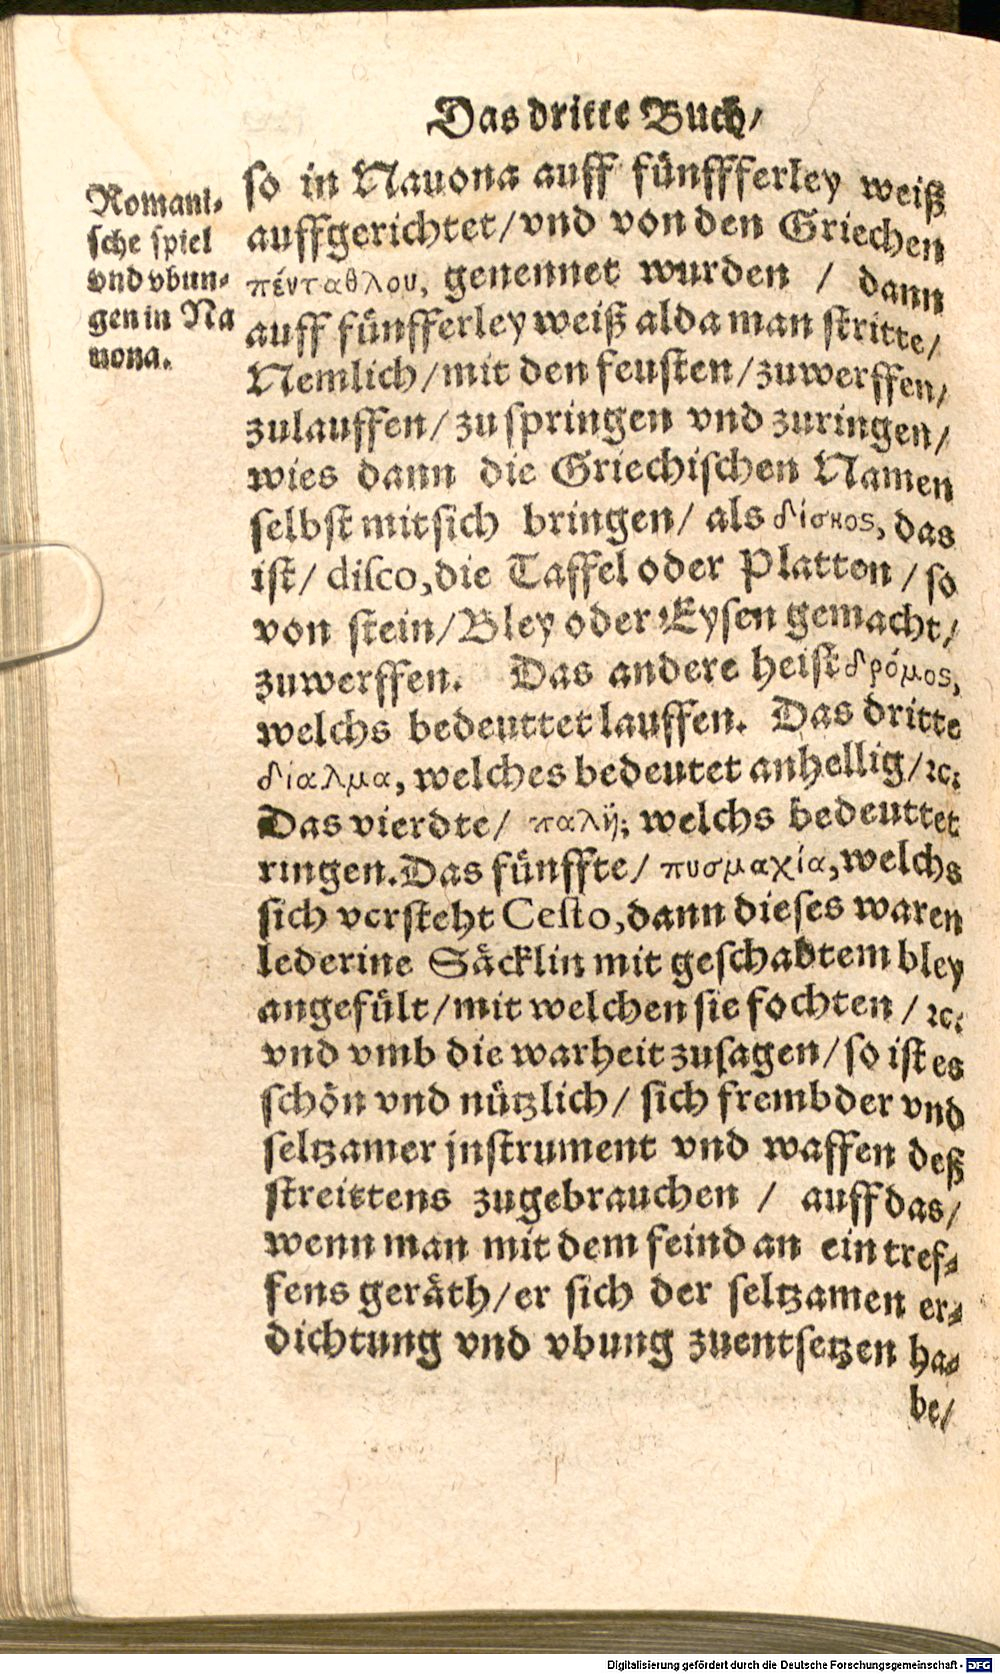 Das dritte Buch/
Romani-
sche spiel
vnd vbun-
gen in Na
uona.
so in Nauona auff fünffferley weiß
auffgerichtet/ vnd von den Griechen
πένταθλου, genennet wurden / dann
auff fünfferley weiß alda man stritte/
Nemlich/ mit den feusten/ zuwerffen/
zulauffen/ zu springen vnd zuringen/
wies dann die Griechischen Namen
selbst mit sich bringen/ als δίσκος, das
ist/ disco, die Taffel oder Platten / so
von stein/ Bley oder Eysen gemacht/
zuwerffen. Das andere heist δρόμος,
welchs bedeuttet lauffen. Das dritte
δίαλμα, welches bedeutet anhellig/ ꝛc:
Das vierdte/ παλὴ; welchs bedeuttet
ringen. Das fünffte/ πυσμαχία, welchs
sich versteht Cesto, dann dieses waren
lederine Säcklin mit geschabtem bley
angefült/ mit welchen sie fochten / ꝛc:
vnd vmb die warheit zusagen/ so ist es
schön vnd nützlich/ sich frembder vnd
seltzamer jnstrument vnd waffen deß
streittens zugebrauchen / auff das/
wenn man mit dem feind an ein tref-
fens geräth/ er sich der seltzamen er-
dichtung vnd vbung zuentsetzen ha-
be/
Digitalisierung gefördert durch die Deutsche Forschungsgemeinschaft - DFG